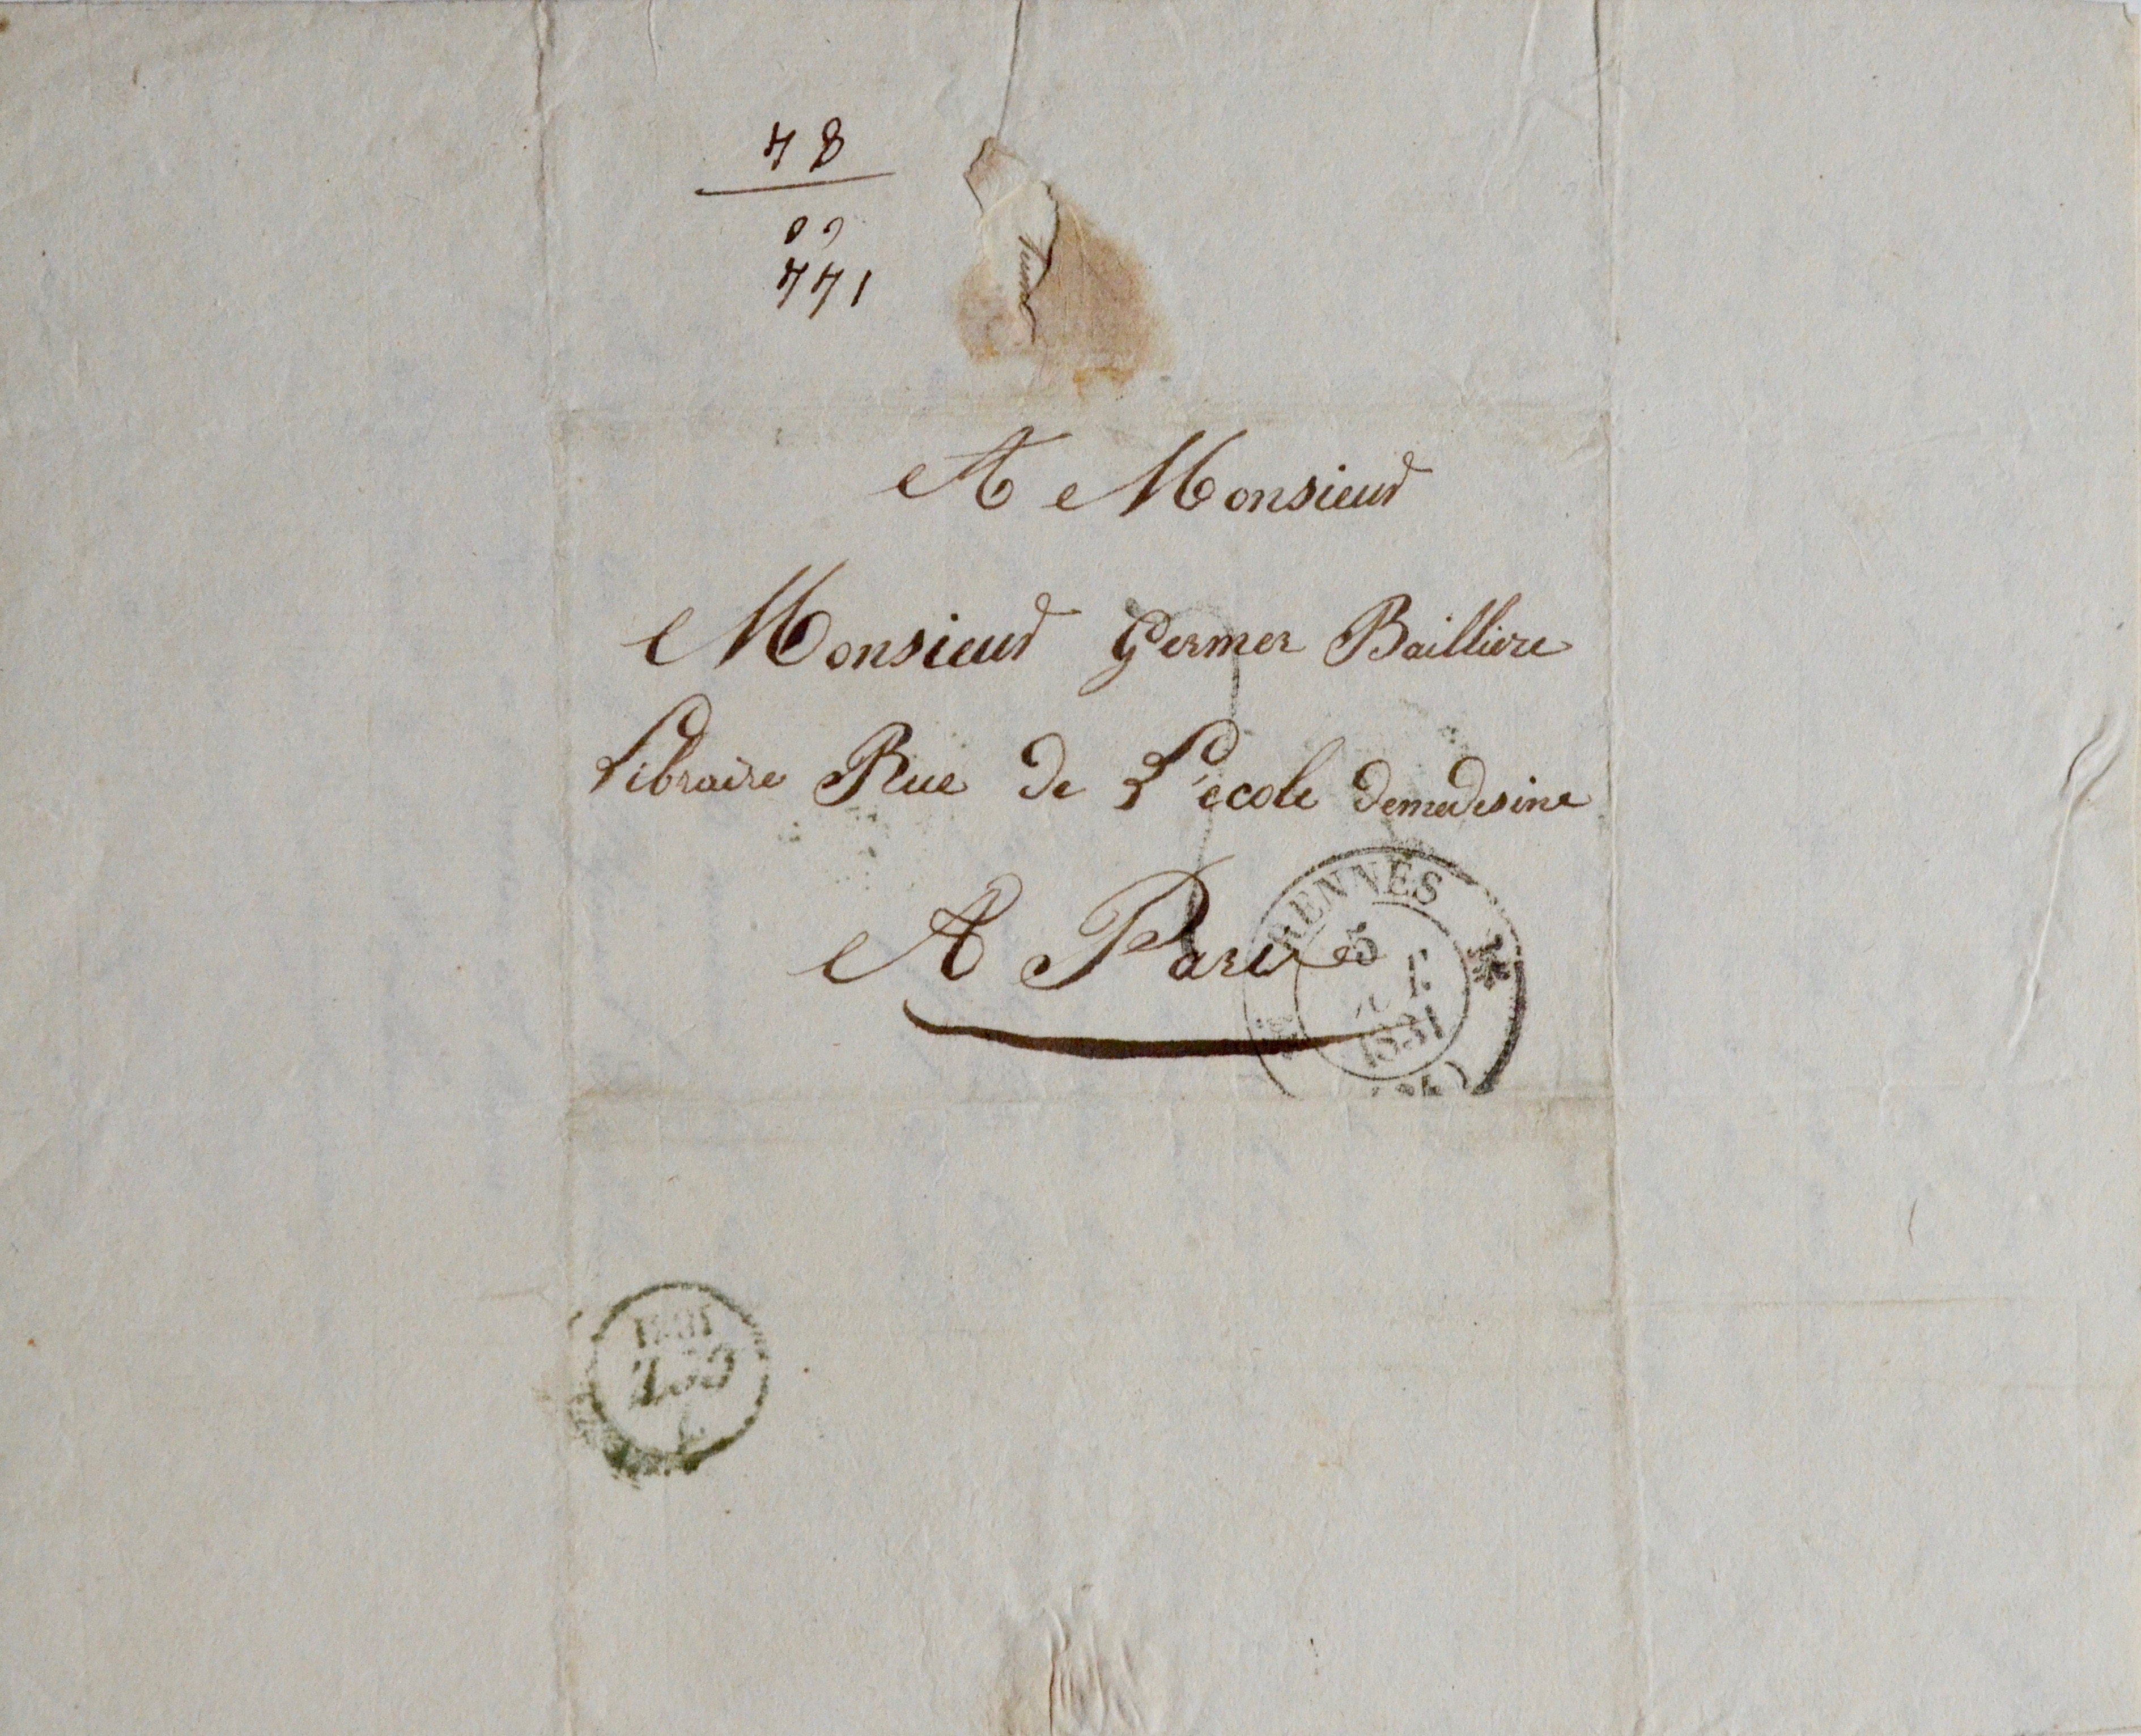 78
00
771
A Monsieur
Monsieur Germer Bailliere
Libraire Rue de L'école demedesine
A Paris
RENNES
5
1831